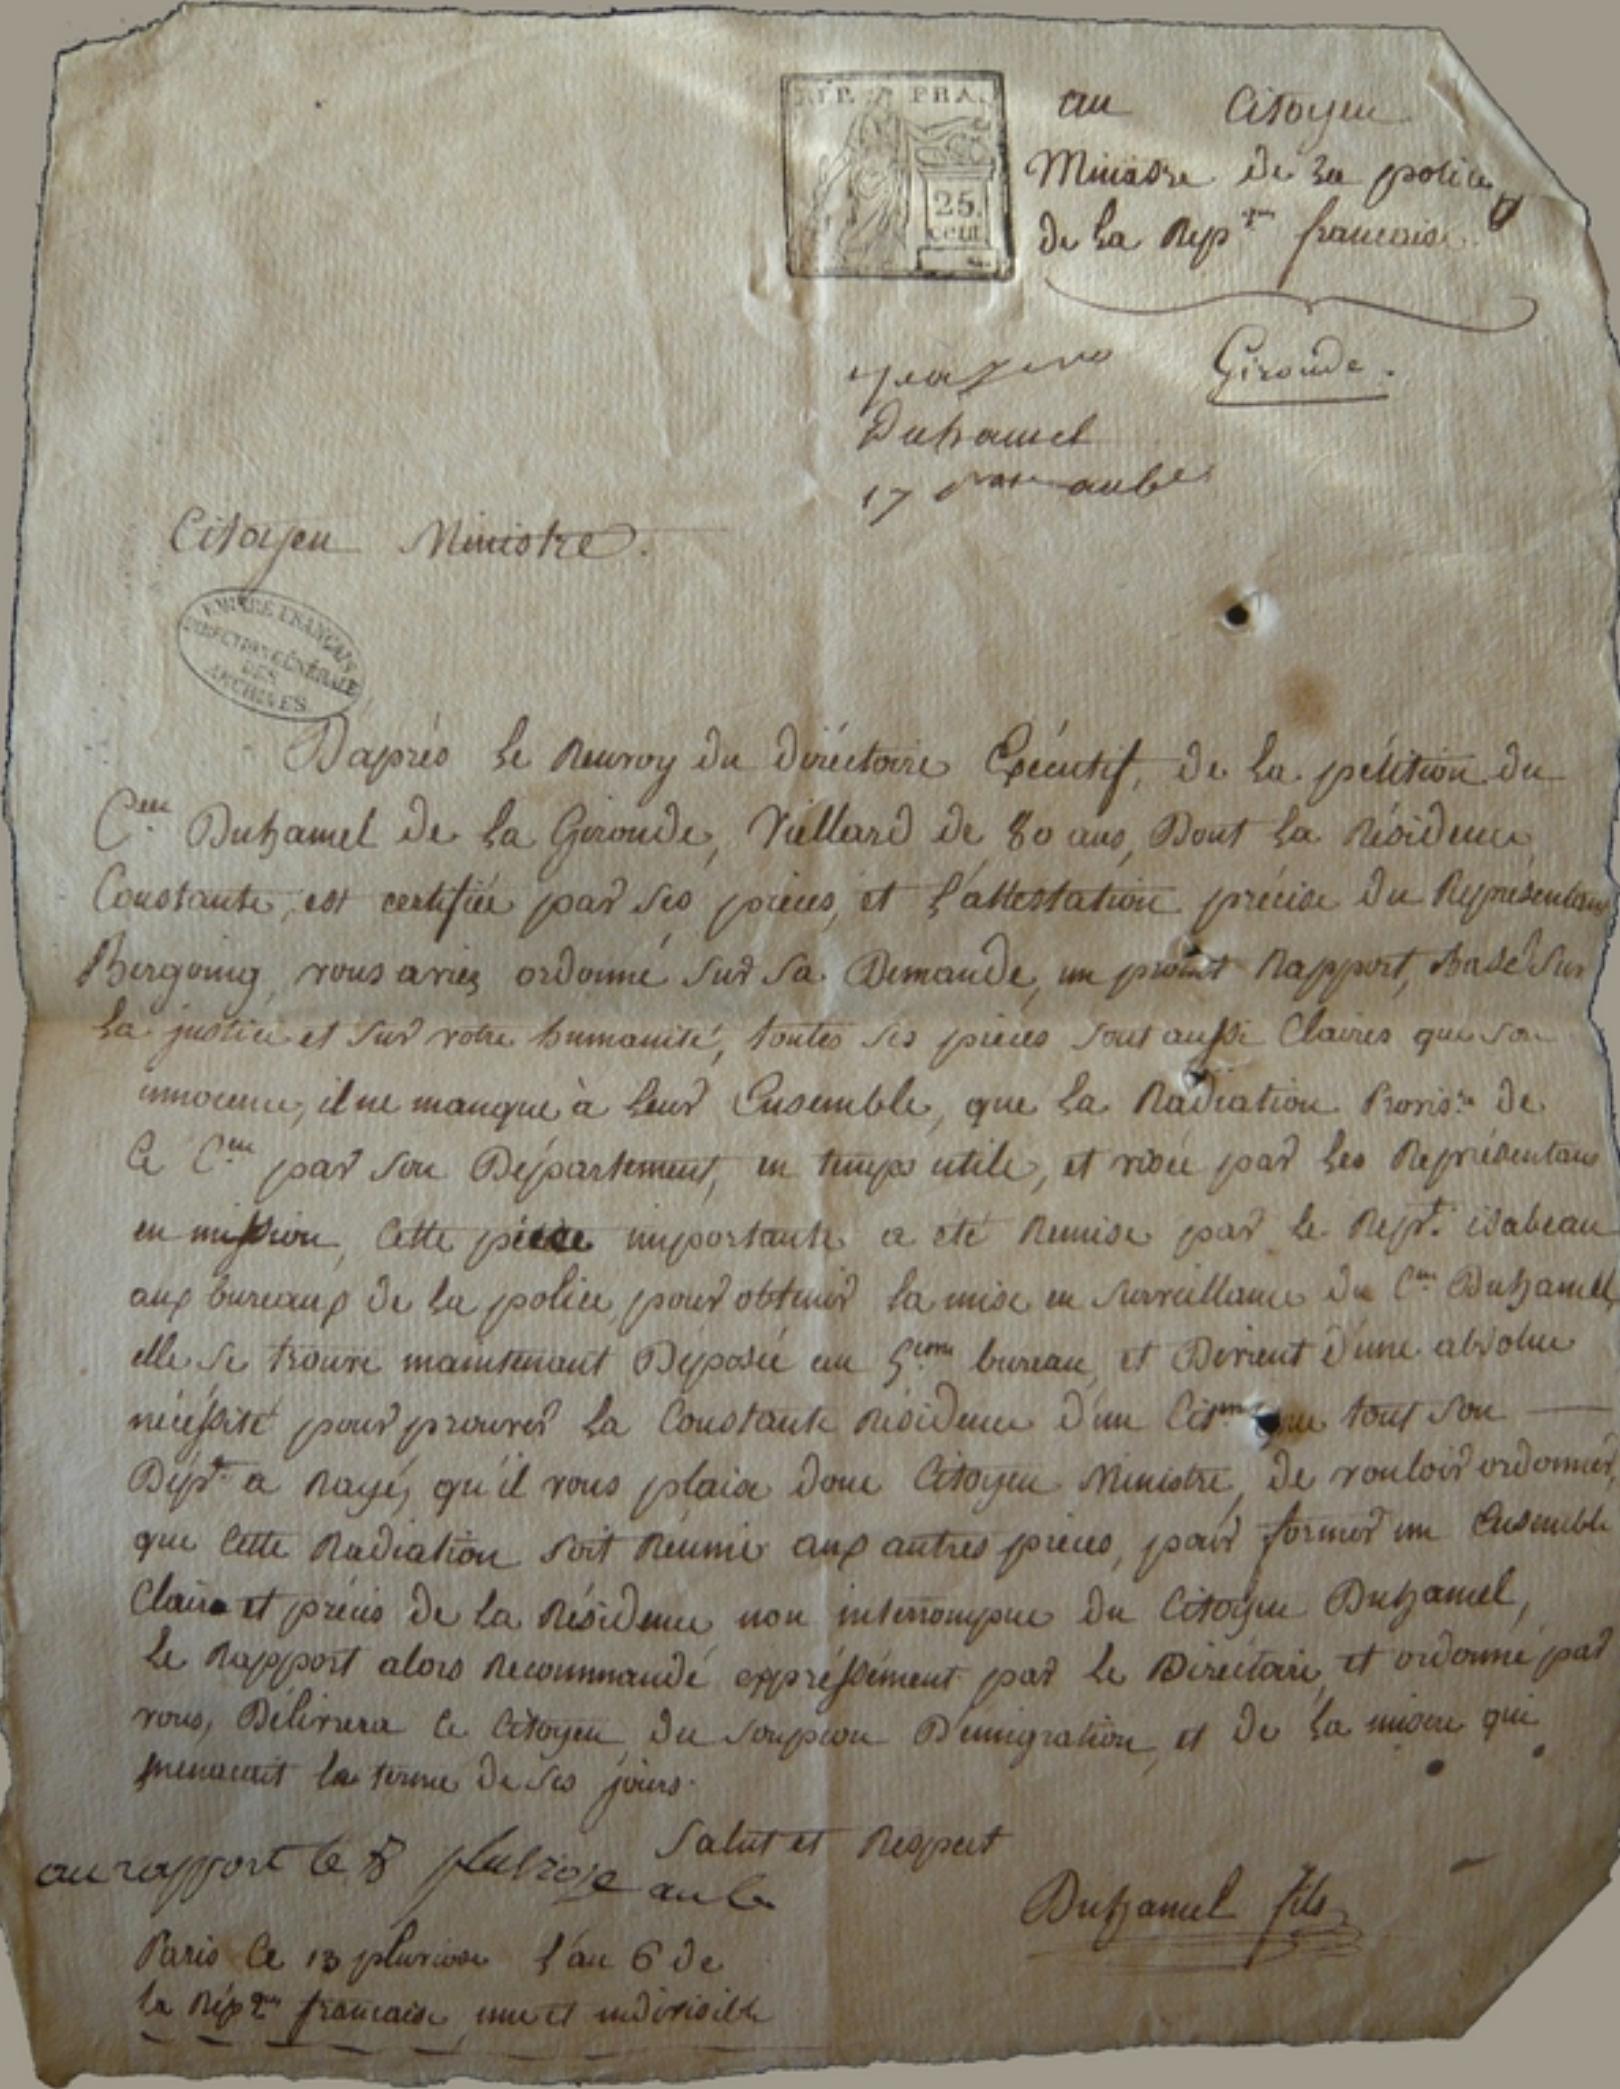 REP. FRA.
25.
cent.
au Citoyen
Ministre de la police
de la Repque francaise.
Gironde.
Duhamel
17 an 6e
Citoyen Ministre.
EMPIRE FRANÇAIS
DIRECTION GÉNÉRALE
DES
ARCHIVES
D'aprés le Renvoy du Diréctoire Exécutif, de la pétition du
Cen Duhamel de la Gironde, Viellard de 80 ans, Dont la Résidence
Constante, est certifiée par ses piéces, et l'attestation précise du Représentant
Bergoing, vous aviez ordonné sur sa Demande, un promt Rapport, Basé sur
la justice et sur votre humanité, toutes ses piéces sont aussi Claires que son
innocence, il ne manque à leur Ensemble, que la Radiation Provisre de
Ce Cen par son Département, en temps utile, et visée par les Représentans
en mission, Cette piéce importante a été Remise par le Reprt. isabeau
aux bureaux de la police, pour obtenir la mise en surveillance du Cen Duhamel,
elle se trouve maintenant Déposée au 5eme bureau, et Devient d'une absolue
nécéssité pour prouver la Constante Résidence d'un Citen que tout son
Dépt a Rayé, qu'il vous plaise donc Citoyen Ministre, de vouloir ordonner,
que Cette Radiation soit Réunie aux autres piéces, pour former un Ensemble
Claire et précis de la Résidence non interrompue du Citoyen Duhamel,
le Rapport alors Recommandé expréssément par le Diréctoire, et ordonné par
vous, Délivrera Ce Citoyen, du soupçon D'emigration, et de la misere qui
menacait le terme de ses jours.
Salut et Respect
au rapport le 8 pluviose an 6e
Duhamel fils
Paris Ce 13 pluviose l'an 6 de
la Répque francaise une et indivisible